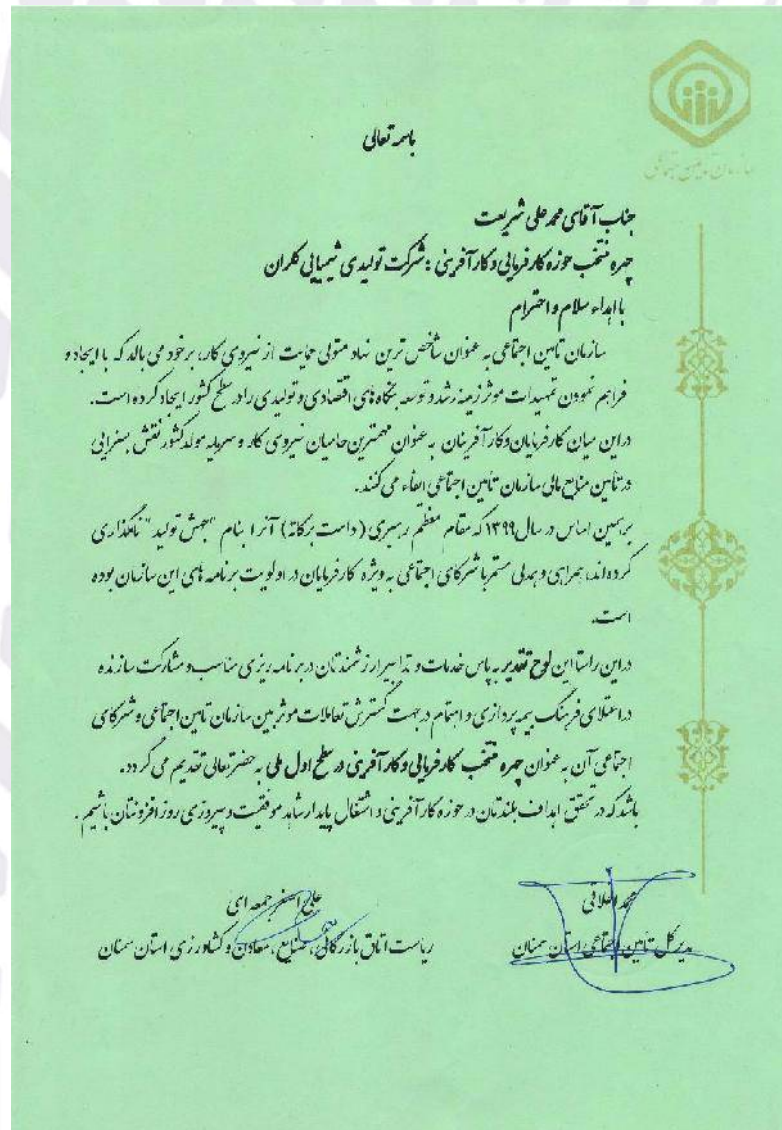 سازمان تامین اجتماعی
باسمه تعالی
جناب آقای محمد علی شریعت
چهره منتخب حوزه کارفرمایی و کارآفرینی : شرکت تولیدی شیمیایی کلران
با اهداء سلام و احترام
سازمان تامین اجتماعی به عنوان شاخص ترین نهاد متولی حمایت از نیروی کار، بر خود می بالد که با ایجاد و
فراهم نمودن تمهیدات موثر زمینه رشد و توسعه بنگاه های اقتصادی و تولیدی را در سطح کشور ایجاد کرده است.
در این میان کارفرمایان و کارآفرینان به عنوان مهمترین حامیان نیروی کار و سرمایه مولد کشور نقش بسزایی
در تأمین منابع مالی سازمان تأمین اجتماعی ایفاء می کنند.
برهمین اساس در سال ۱۳۹۹ که مقام معظم رهبری (دامت برکاته) آنرا بنام "جهش تولید" نامگذاری
کرده اند، همراهی و همدلی مستمر با شرکای اجتماعی به ویژه کارفرمایان در اولویت برنامه های این سازمان بوده
است.
در این راستا این لوح تقدیر به پاس خدمات و تدابیر ارزشمندتان در برنامه ریزی مناسب و مشارکت سازنده
در اعتلای فرهنگ بیمه پردازی و اهتمام در جهت گسترش تعاملات موثر بین سازمان تامین اجتماعی و شرکای
اجتماعی آن به عنوان چهره منتخب کارفرمایی و کارآفرینی در سطح اول ملی به حضرتعالی تقدیم می گردد.
باشد که در تحقق اهداف بلندتان در حوزه کارآفرینی و اشتغال پایدار شاهد موفقیت و پیروزی روز افزونتان باشیم.
محمد اخلاقی
مدیر کل تأمین اجتماعی استان سمنان
علی اصغر جمعه ای
ریاست اتاق بازرگانی، صنایع، معادن و کشاورزی استان سمنان